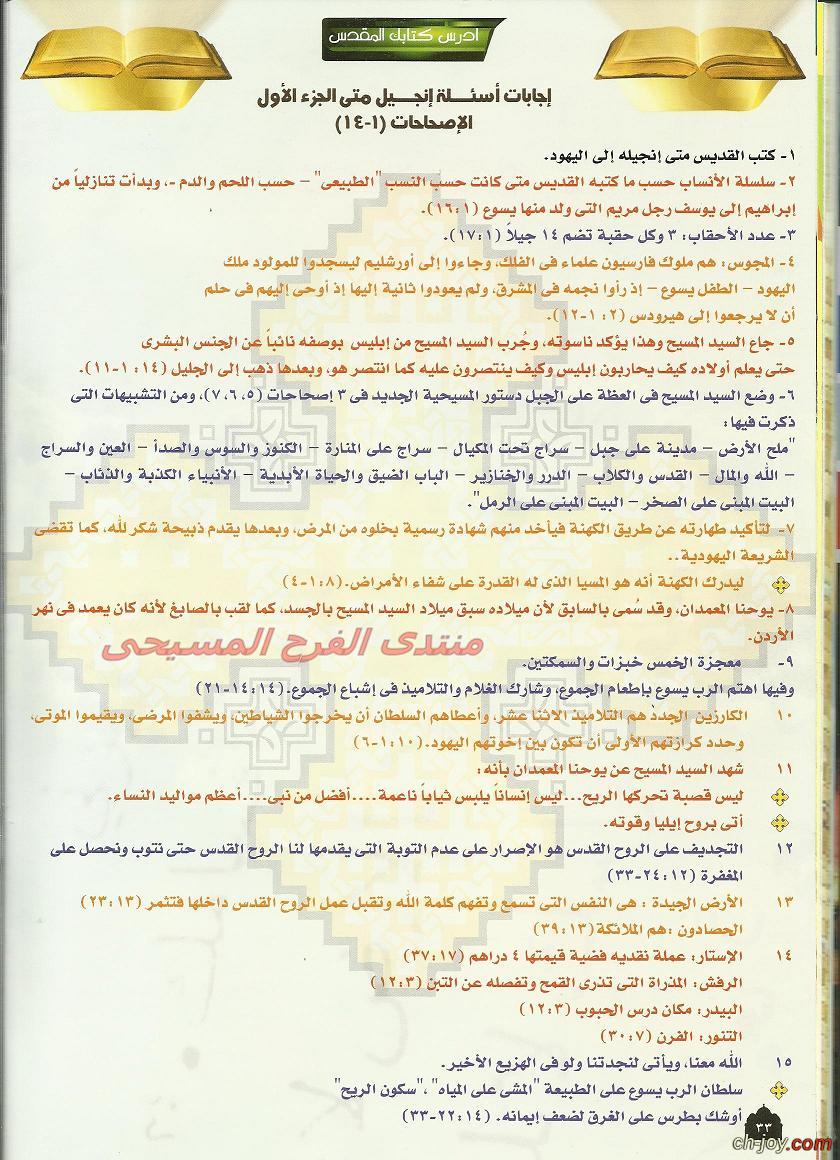 ادرس كتابك المقدس
إجابات أسئلة إنجيل متى الجزء الأول
الإصحاحات (١-١٤)
١- كتب القديس متى إنجيله إلى اليهود.
٢- سلسلة الأنساب حسب ما كتبه القديس متى كانت حسب النسب "الطبيعى" – حسب اللحم والدم -، وبدأت تنازلياً من
إبراهيم إلى يوسف رجل مريم التى ولد منها يسوع (١٦:١).
٣- عدد الأحقاب: ٣ وكل حقبة تضم ١٤ جيلاً (١٧:١).
٤- المجوس: هم ملوك فارسيون علماء فى الفلك، وجاءوا إلى أورشليم ليسجدوا للمولود ملك
اليهود – الطفل يسوع – إذ رأوا نجمه فى المشرق، ولم يعودوا ثانية إليها إذ أوحى إليهم فى حلم
أن لا يرجعوا إلى هيرودس (٢: ١-١٢).
٥- جاع السيد المسيح وهذا يؤكد ناسوته، وجُرب السيد المسيح من إبليس بوصفه نائباً عن الجنس البشرى
حتى يعلم أولاده كيف يحاربون إبليس وكيف ينتصرون عليه كما انتصر هو، وبعدها ذهب إلى الجليل (١٤: ١-١١).
٦- وضع السيد المسيح فى العظة على الجبل دستور المسيحية الجديد فى ٣ إصحاحات (٥، ٦، ٧)، ومن التشبيهات التى
ذكرت فيها:
"ملح الأرض – مدينة على جبل – سراج تحت المكيال – سراج على المنارة – الكنوز والسوس والصدأ – العين والسراج
– الله والمال – القدس والكلاب – الدرر والخنازير – الباب الضيق والحياة الأبدية – الأنبياء الكذبة والذئاب –
البيت المبنى على الصخر – البيت المبنى على الرمل".
٧- لتأكيد طهارته عن طريق الكهنة فيأخد منهم شهادة رسمية بخلوه من المرض، وبعدها يقدم ذبيحة شكر لله، كما تقضى
الشريعة اليهودية..
ليدرك الكهنة أنه هو المسيا الذى له القدرة على شفاء الأمراض.(١:٨-٤)
٨- يوحنا المعمدان، وقد سُمى بالسابق لأن ميلاده سبق ميلاد السيد المسيح بالجسد، كما لقب بالصابغ لأنه كان يعمد فى نهر
الأردن.
منتدى الفرح المسيحى
٩- معجزة الخمس خبزات والسمكتين.
وفيها اهتم الرب يسوع بإطعام الجموع، وشارك الغلام والتلاميذ فى إشباع الجموع.(١٤:١٤-٢١)
١٠ الكارزين الجدد هم التلاميذ الاثنا عشر، وأعطاهم السلطان أن يخرجوا الشياطين، ويشفوا المرضى، ويقيموا الموتى،
وحدد كرازتهم الأولى أن تكون بين إخوتهم اليهود.(١:١٠-٦)
١١ شهد السيد المسيح عن يوحنا المعمدان بأنه:
ليس قصبة تحركها الريح...ليس إنساناً يلبس ثياباً ناعمة....أفضل من نبى....أعظم مواليد النساء.
أتى بروح إيليا وقوته.
١٢ التجديف على الروح القدس هو الإصرار على عدم التوبة التى يقدمها لنا الروح القدس حتى نتوب ونحصل على
المغفرة (٢٤:١٢-٣٣)
١٣ الأرض الجيدة : هى النفس التى تسمع وتفهم كلمة الله وتقبل عمل الروح القدس داخلها فتثمر (٢٣:١٣)
الحصادون :هم الملائكة (٣٩:١٣)
١٤ الإستار: عملة نقديه فضية قيمتها ٤ دراهم (٣٧:١٧)
الرفش: المذراة التى تذرى القمح وتفصله عن التبن (١٢:٣)
البيدر: مكان درس الحبوب (١٢:٣)
التنور: الفرن (٣٠:٧)
١٥ الله معنا، ويأتى لنجدتنا ولو فى الهزيع الأخير.
سلطان الرب يسوع على الطبيعة "المشى على المياه" ،"سكون الريح"
أوشك بطرس على الغرق لضعف إيمانه. (٢٢:١٤-٣٣)
٣٣
ch-joy.com